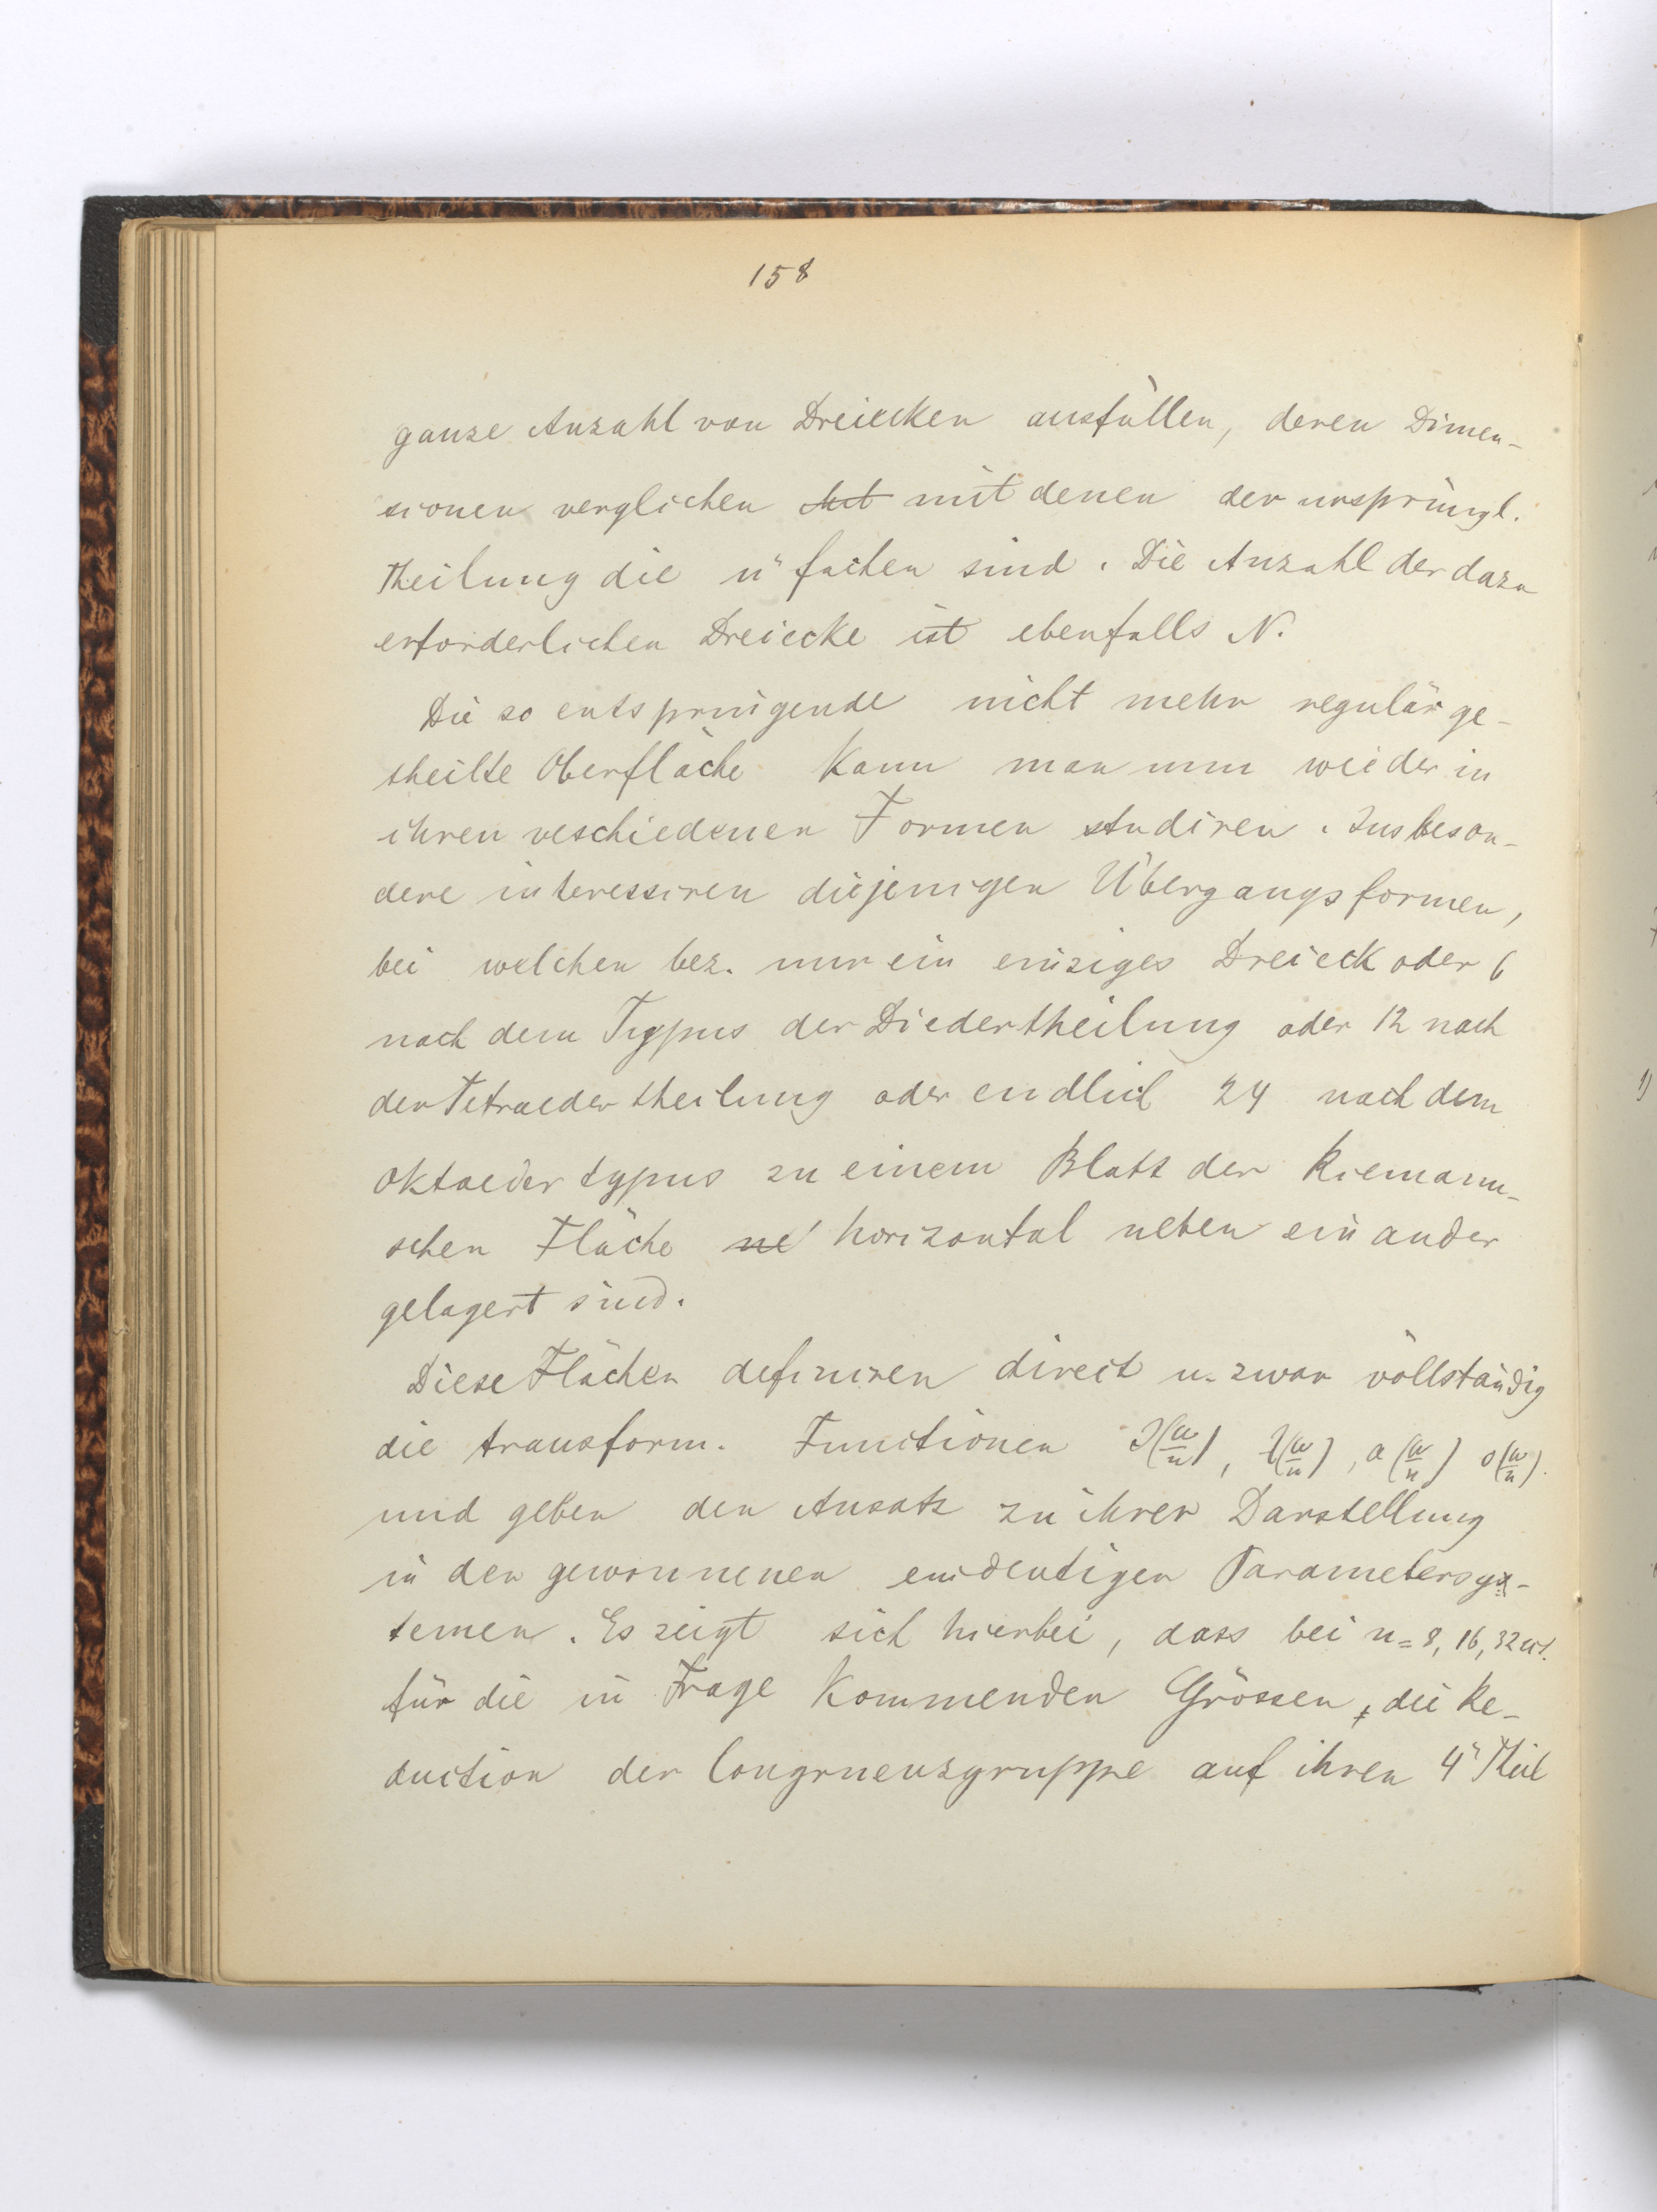 158
ganze Anzahl von Dreiecken ausfüllen, deren Dimen-
sionen verglichen mit denen der ursprüngl.
Theilung die n" fachen sind. Die Anzahl der dazu
erforderlichen Dreiecke ist ebenfalls N.
Die so entspringende nicht mehr regulär ge-
theilte Oberfläche kann man nun wieder in
ihren veschiedenen Formen studiren. Insbeson-
dere interessiren diejenigen Übergangsformen,
bei welchen bez. nur ein einziges Dreieck oder 6
nach dem Typus der Diedertheilung oder 12 nach
der Tetraedertheilung oder endlich 24 nach dem
Oktaedertypus zu einem Blatt der Riemann-
schen Fläche horizontal neben einander
gelagert sind.
Diese Flächen definiren direct u. zwar vollständig
die transform. Functionen J(ω/n), λ(ω/n), a(ω/n) o(ω/n).
und geben den Ansatz zu ihrer Darstellung
in den gewonnenen eindeutigen Parametersys-
temen. Es zeigt sich hierbei, dass bei n=8, 16, 32
für die in Frage kommenden Grössen, die Re-
duction der Congruenzgruppe auf ihren 4" Theil